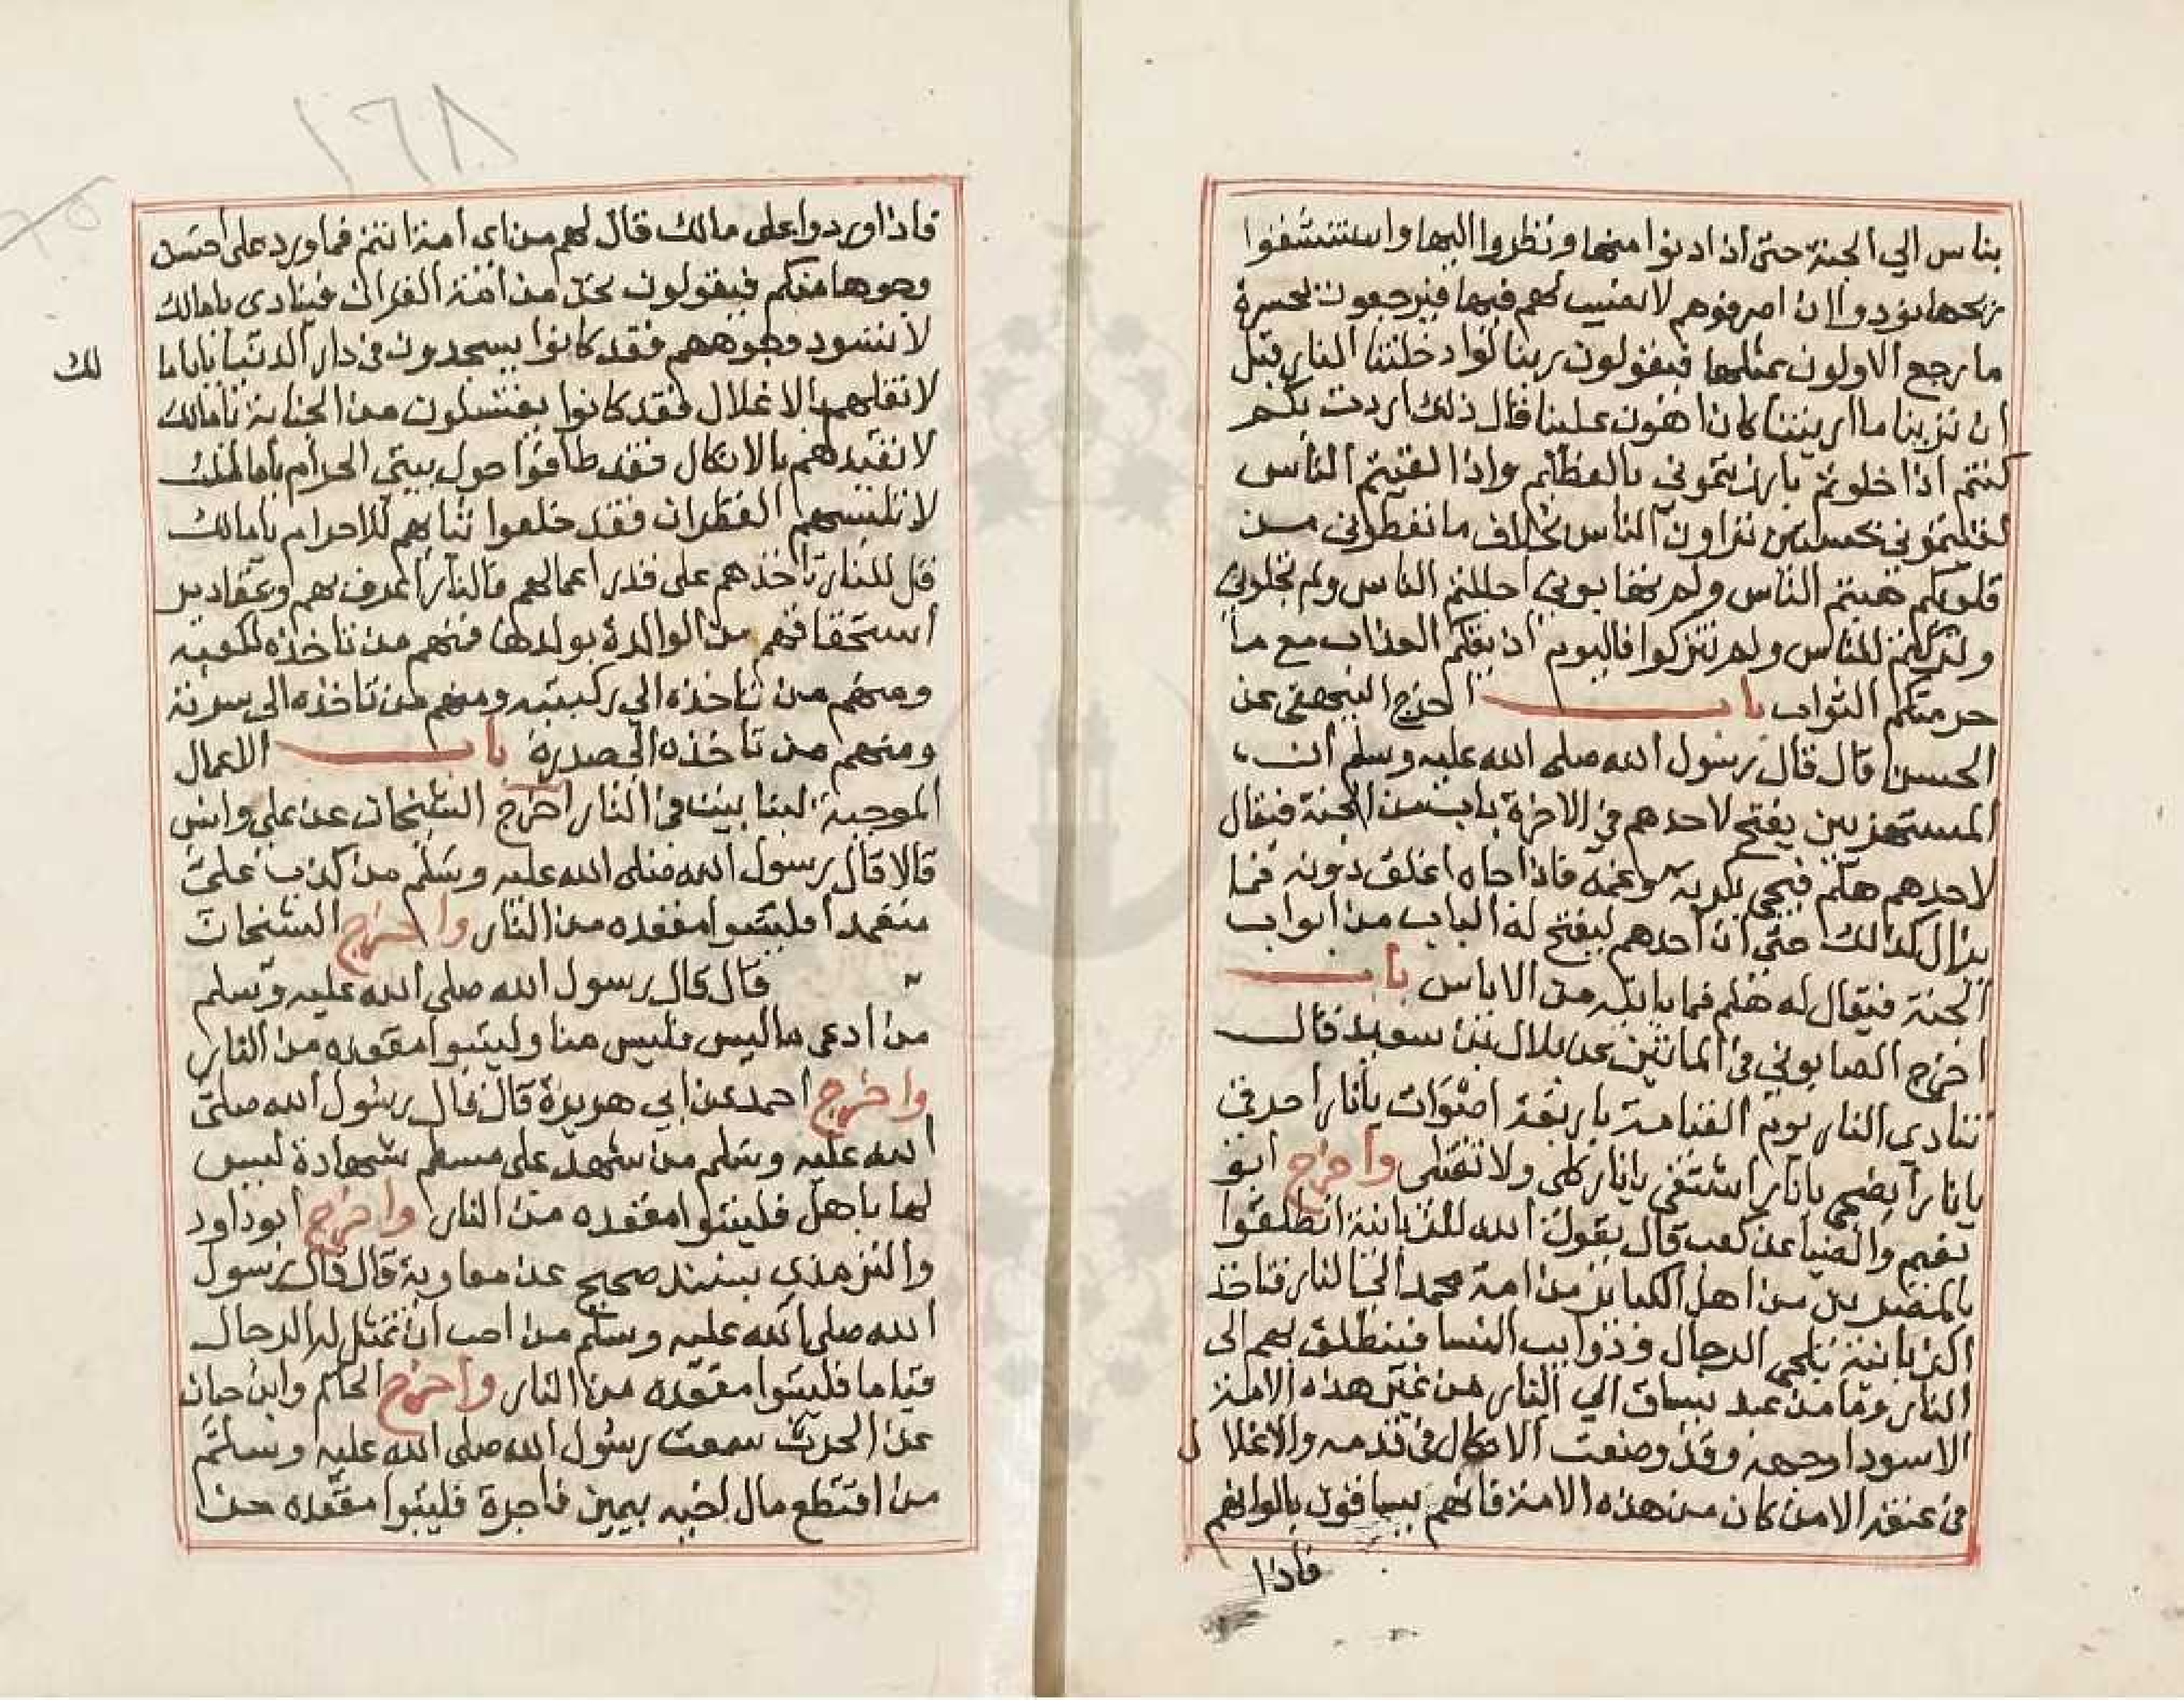 بناس الي الجنة حتى اذا دنوا منها ونظروا اليها واستنشقوا
ريحها نودوا ان اصرفوهم لا نصيب لهم فيها فيرجعون بحسرة
ما رجع الاولون بمثلها فيقولون ربنا لوا دخلتنا النار قبل
ان ترينا ما اريتنا كان اهون علينا قال ذلك اردت بكم
كنتم اذا خلوتم بارزتموني بالعظائم واذا لقيتم الناس
لقيتموني مخبتين تراون الناس بخلاف ما تعطوني من
قلوبكم هبتم الناس ولم تهابوني اجللتم الناس ولم تجلوني
وتركتم للناس ولم تتركوا فاليوم اذيقكم العذاب مع ما
حرمتكم الثواب باب اخرج البيهقي عن
الحسن قال قال رسول الله صلى الله عليه وسلم ان
المستهزيين يفتح لاحدهم في الاخرة باب من الجنة فيقال
لاحدهم هلم فيجي بكربه وغمه فاذا جاه اغلق دونه فما
يزال كذلك حتى ان احدهم ليفتح له الباب من ابواب
الجنة فيقال له هلم فما ياتيه من الاياس باب
اخرج الصابوني في الماتين عن بلال بن سعيد قال
تنادي النار يوم القيامة باربعة اصوات يانار احرقي
يانار انضجي يانار اشتفي يانار كلي ولا تقتلي واخرج ابو
نعيم والضيا عن كعب قال يقول الله للزبانية انطلقوا
بالمصرين من اهل الكبائر من امة محمد الى النار فتاخذ
الزبانية بلحى الرجال وذوايب النسا فينطلق بهم الى
النار وما من عبد يساق الي النار من غير هذه الامة
الا سودا وجهه وقد وضعت الانكال في قدمه والاغلال
في عنقه الا من كان من هذه الامة فانهم يساقون بالوانهم
فاذا
١٦٨
فاذا وردوا على مالك قال لهم من اي امة انتم فما ورد على احسن
وجوها منكم فيقولون نحن من امة القران فينادى يا مالك
لا تسود وجوههم فقد كانوا يسجدون في دار الدنيا يا ما
لك
لا تغلهم بالاغلال فقد كانوا يغتسلون من الجنابة يا مالك
لا تقيدهم بالانكال فقد طافوا حول بيتي الحرام يا مالك
لا تلبسهم القطران فقد خلعوا ثيابهم للاحرام يا مالك
قل للنار تاخذهم على قدر اعمالهم فالنار اعرف بهم وبمقادير
استحقاقهم من الوالدة بولدها فمنهم من تاخذه لكعبيه
ومنهم من تاخذه الي ركبتيه ومنهم من تاخذه الى سرته
ومنهم من تاخذه الى صدره باب الاعمال
الموجبة لبنا بيت في النار اخرج الشيخان عن علي وانس
قالا قال رسول الله صلى الله عليه وسلم من كذب علي
متعمدا فليتبوا مقعده من النار واخرج الشيخان
قال قال رسول الله صلى الله عليه وسلم
من ادعى ما ليس فليس منا وليتبوا مقعده من النار
واخرج احمد عن ابي هريرة قال قال رسول الله صلى
الله عليه وسلم من شهد على مسلم شهادة ليس
لها باهل فليتبوا مقعده من النار واخرج ابو داود
والترمذي بسند صحيح عن معاوية قال قال رسول
الله صلى الله عليه وسلم من احب ان تمثل له الرجال
قياما فليتبوا مقعده من النار واخرج الحاكم وابن حبان
عن الحرث سمعت رسول الله صلى الله عليه وسلم
من اقتطع مال اخيه بيمين فاجرة فليتبوا مقعده من